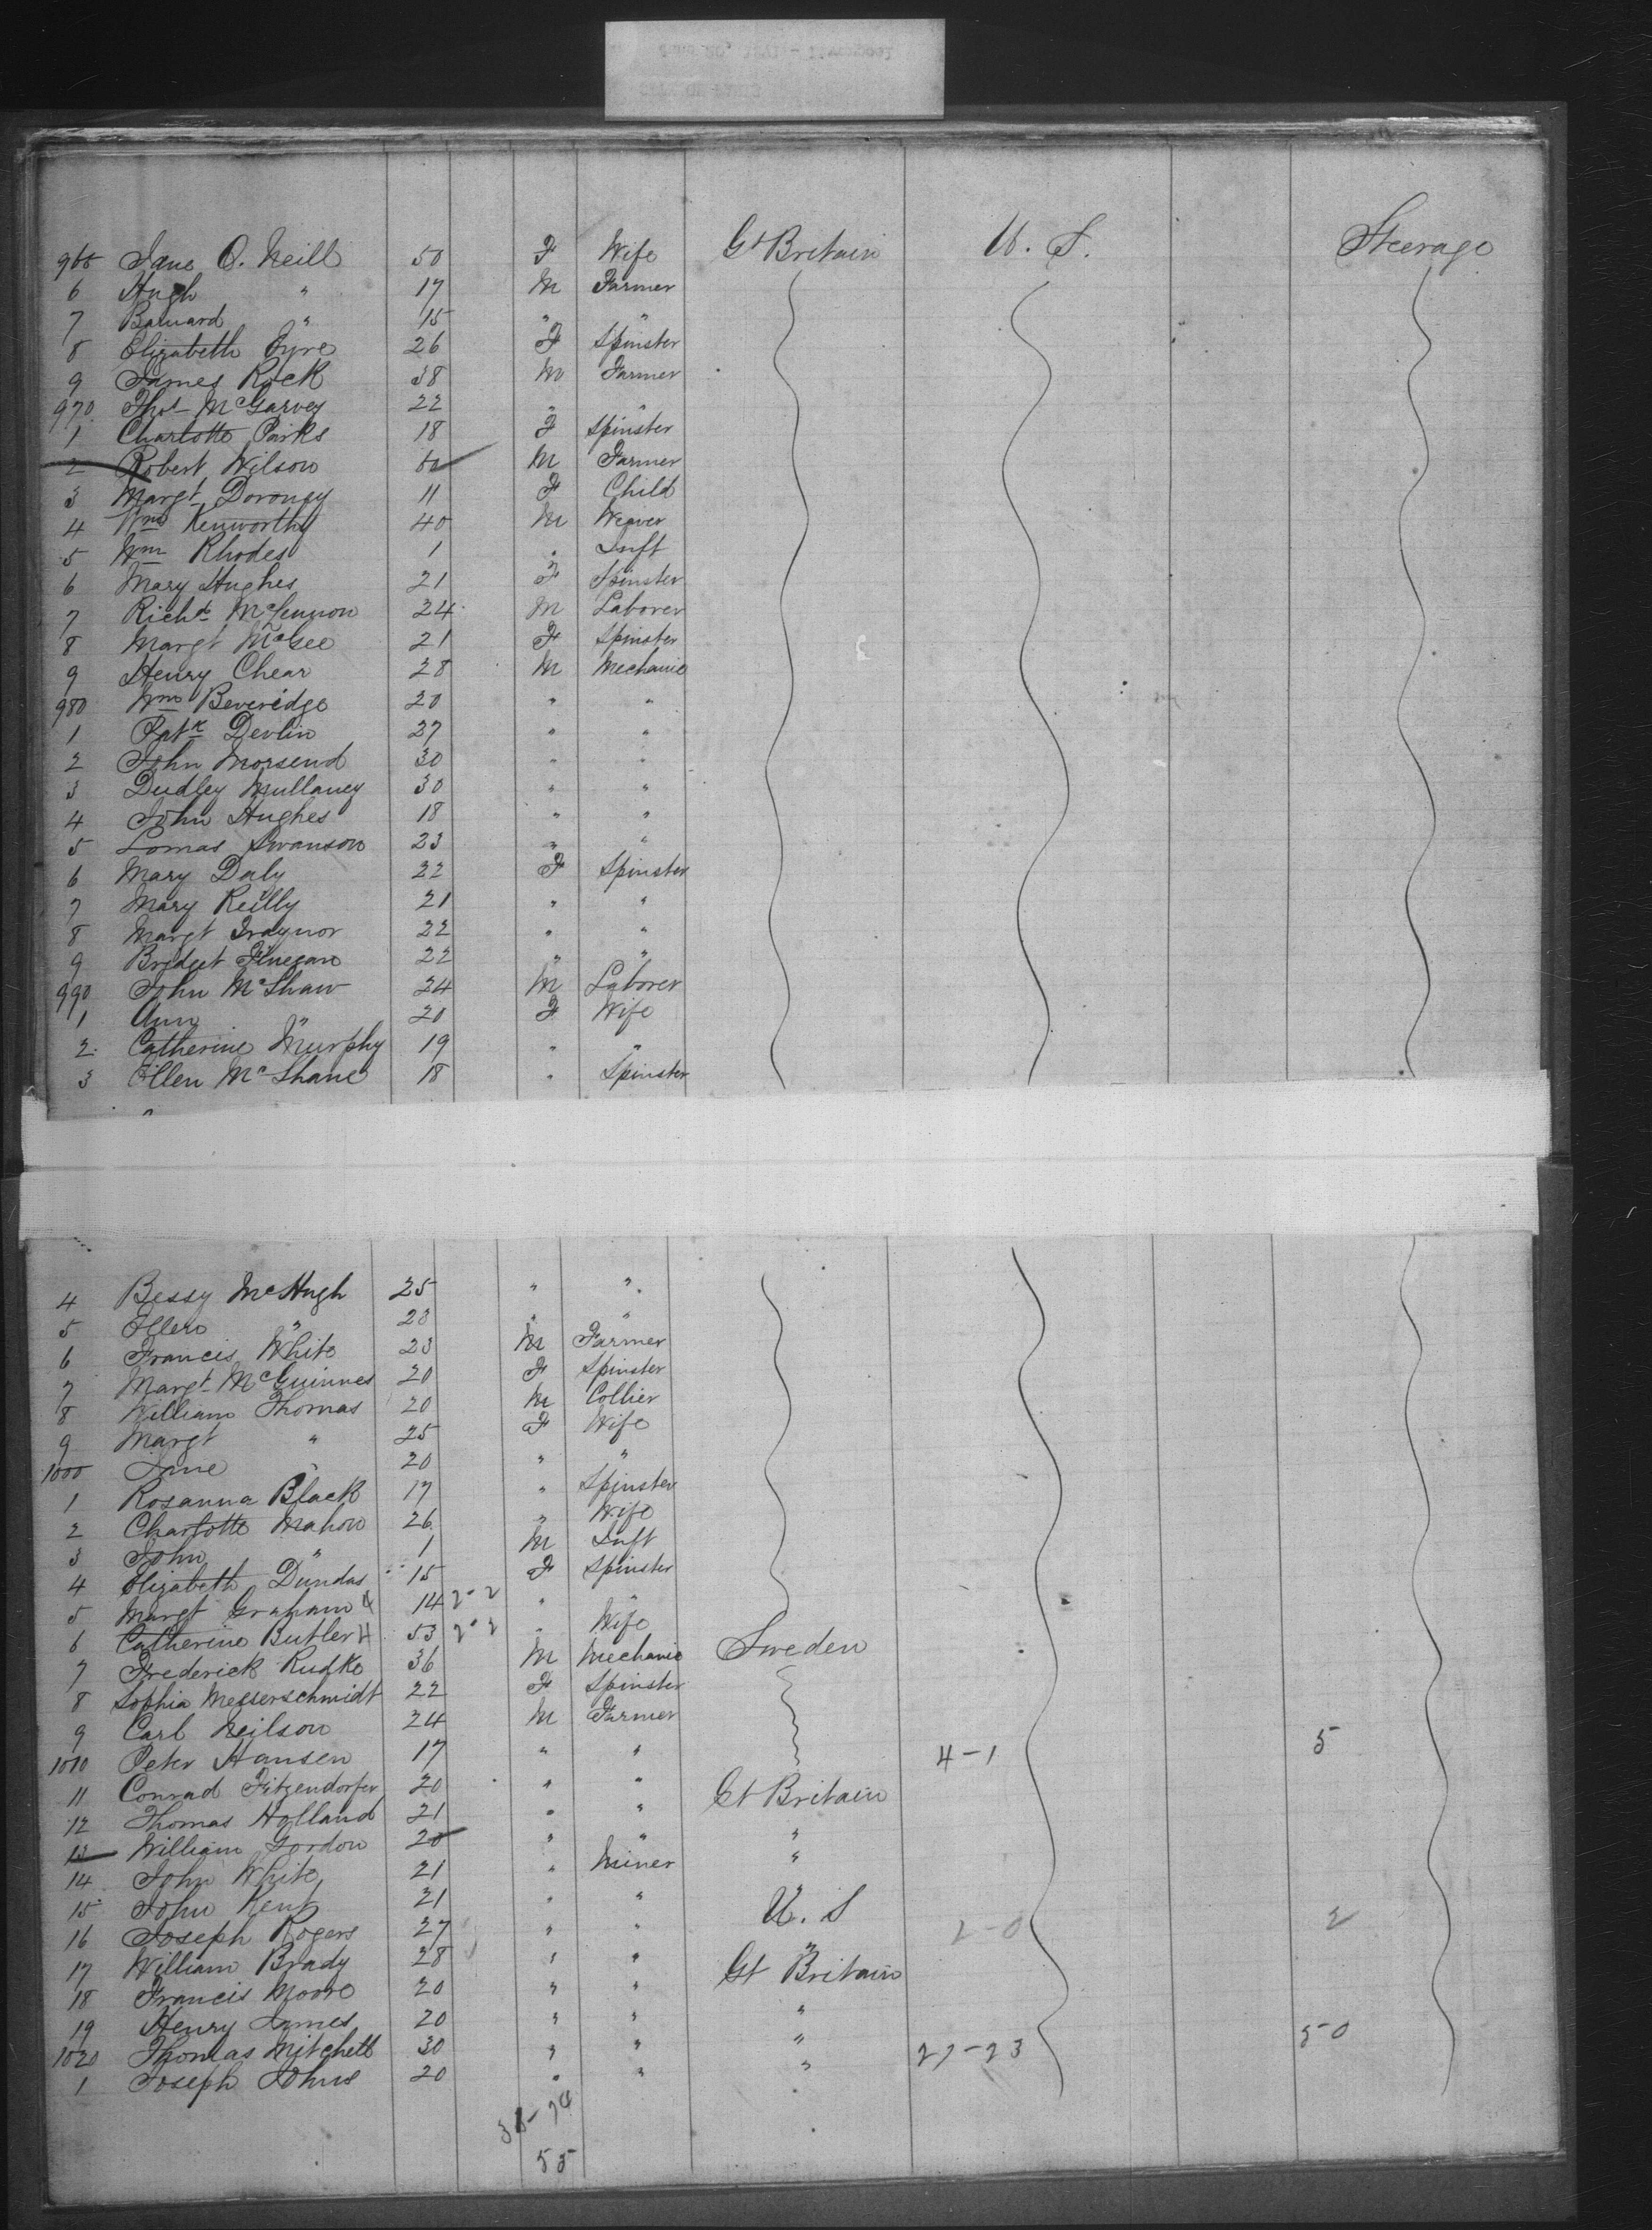 965 Jane O. Neill 50 F Wife Gt Britain U. S. Steerage
6 Hugh " 17 M Farmer
7 Barnard " 15 " "
8 Elizabeth Eyre 26 F Spinster
9 James Rock 38 M Farmer
970 Thos McGarvey 22 " "
1 Charlotte Parks 18 F Spinster
2 Robert Wilson 60 M Farmer
3 Margt Doroney 11 F Child
4 Wm Kenworthy 40 M Weaver
5 Wm Rhodes 1 " Inft
6 Mary Hughes 21 F Spinster
7 Richd McLennon 24 M Laborer
8 Margt McGee 21 F Spinster
9 Henry Chear 28 M Mechanic
980 Wm Beveridge 20 " "
1 Patk Devlin 27 " "
2 John Morsend 30 " "
3 Dudley Mullaney 30 " "
4 John Hughes 18 " "
5 Lomas Swanson 23 " "
6 Mary Daly 22 F Spinster
7 Mary Reilly 21 " "
8 Margt Traynor 22 " "
9 Bridget Finegan 22 " "
990 John McShaw 24 M Laborer
1 Ann " 20 F Wife
2 Catherine Murphy 19 " "
3 Ellen McShane 18 " Spinster
4 Bessy McHugh 25 " "
5 Ellen " 23 " "
6 Francis White 23 M Farmer
7 Margt McGuinnes 20 F Spinster
8 William Thomas 20 M Collier
9 Margt " 25 F Wife
1000 Jane " 20 " "
1 Rosanna Black 17 " Spinster
2 Charlotte Mahon 26 " Wife
3 John " 1 M Inft
4 Elizabeth Dundas 15 F Spinster
5 Margt Graham 4 14 2-2 " "
6 Catherine Butler 4 53 2-2 " Wife
7 Frederick Rudke 36 M Mechanic Sweden
8 Sophia Messerschmidt 22 F Spinster
9 Carl Neilson 24 M Farmer
1010 Peter Hansen 17 " " 4-1 5
11 Conrad Fitzendorfer 20 " " Gt Britain
12 Thomas Holland 21 " "
13 William Gordon 20 " " "
14 John White 21 " Miner "
15 John Kent 21 " " U. S
16 Joseph Rogers 27 " " " 2-0 2
17 William Brady 28 " " Gt Britain
18 Francis Moore 20 " " "
19 Henry James 20 " " "
1020 Thomas Mitchell 30 " " " 27-23 50
1 Joseph Johns 20 " "
55